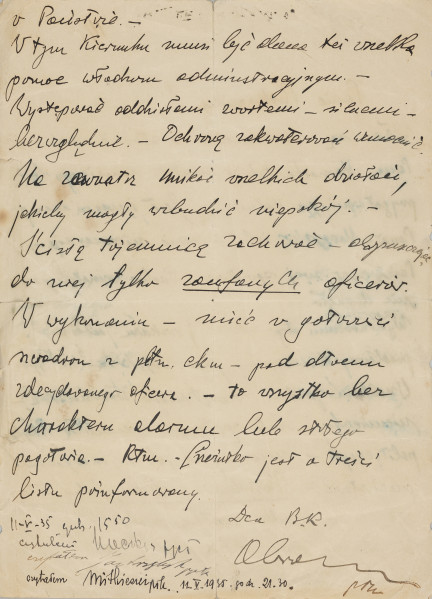 w Państwie. –
W tym kierunku musi być dana też wszelka
pomoc władzom administracyjnym. –
Występować oddziałami zwartemi – silnemi –
bezwzględnie. – Ochronę zakwaterowań wzmocnić.
Na zewnątrz unikać wszelkich działań,
jakieby mogły wzbudzić niepokój. –
Ścisłą tajemnicę zachować –
do niej tylko zaufanych oficerów.
W wykonaniu – mieć w gotowości
szwadron z plut. ckm – pod d-twem
zdecydowanego oficera. – to wszystko bez
charakteru alarmu lub ostrego
pogotowia. – Rtm. – jest o treści
listu poinformowany.
11-V-35 godz. 1550
Dca B.K.
czytałem
czytałem
czytałem 12.V.1935. godz. 21.30.
płk